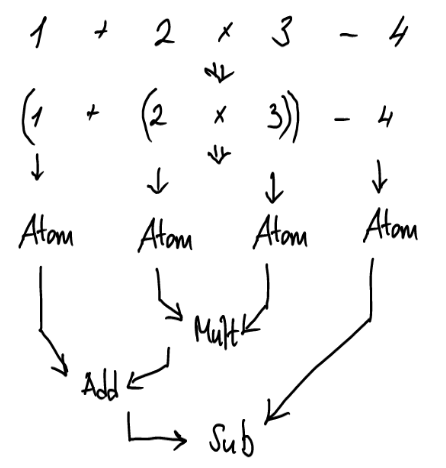 1 + 2 × 3 - 4
(1 + (2 × 3)) - 4
Atom Atom Atom Atom
Mult
Add
Sub